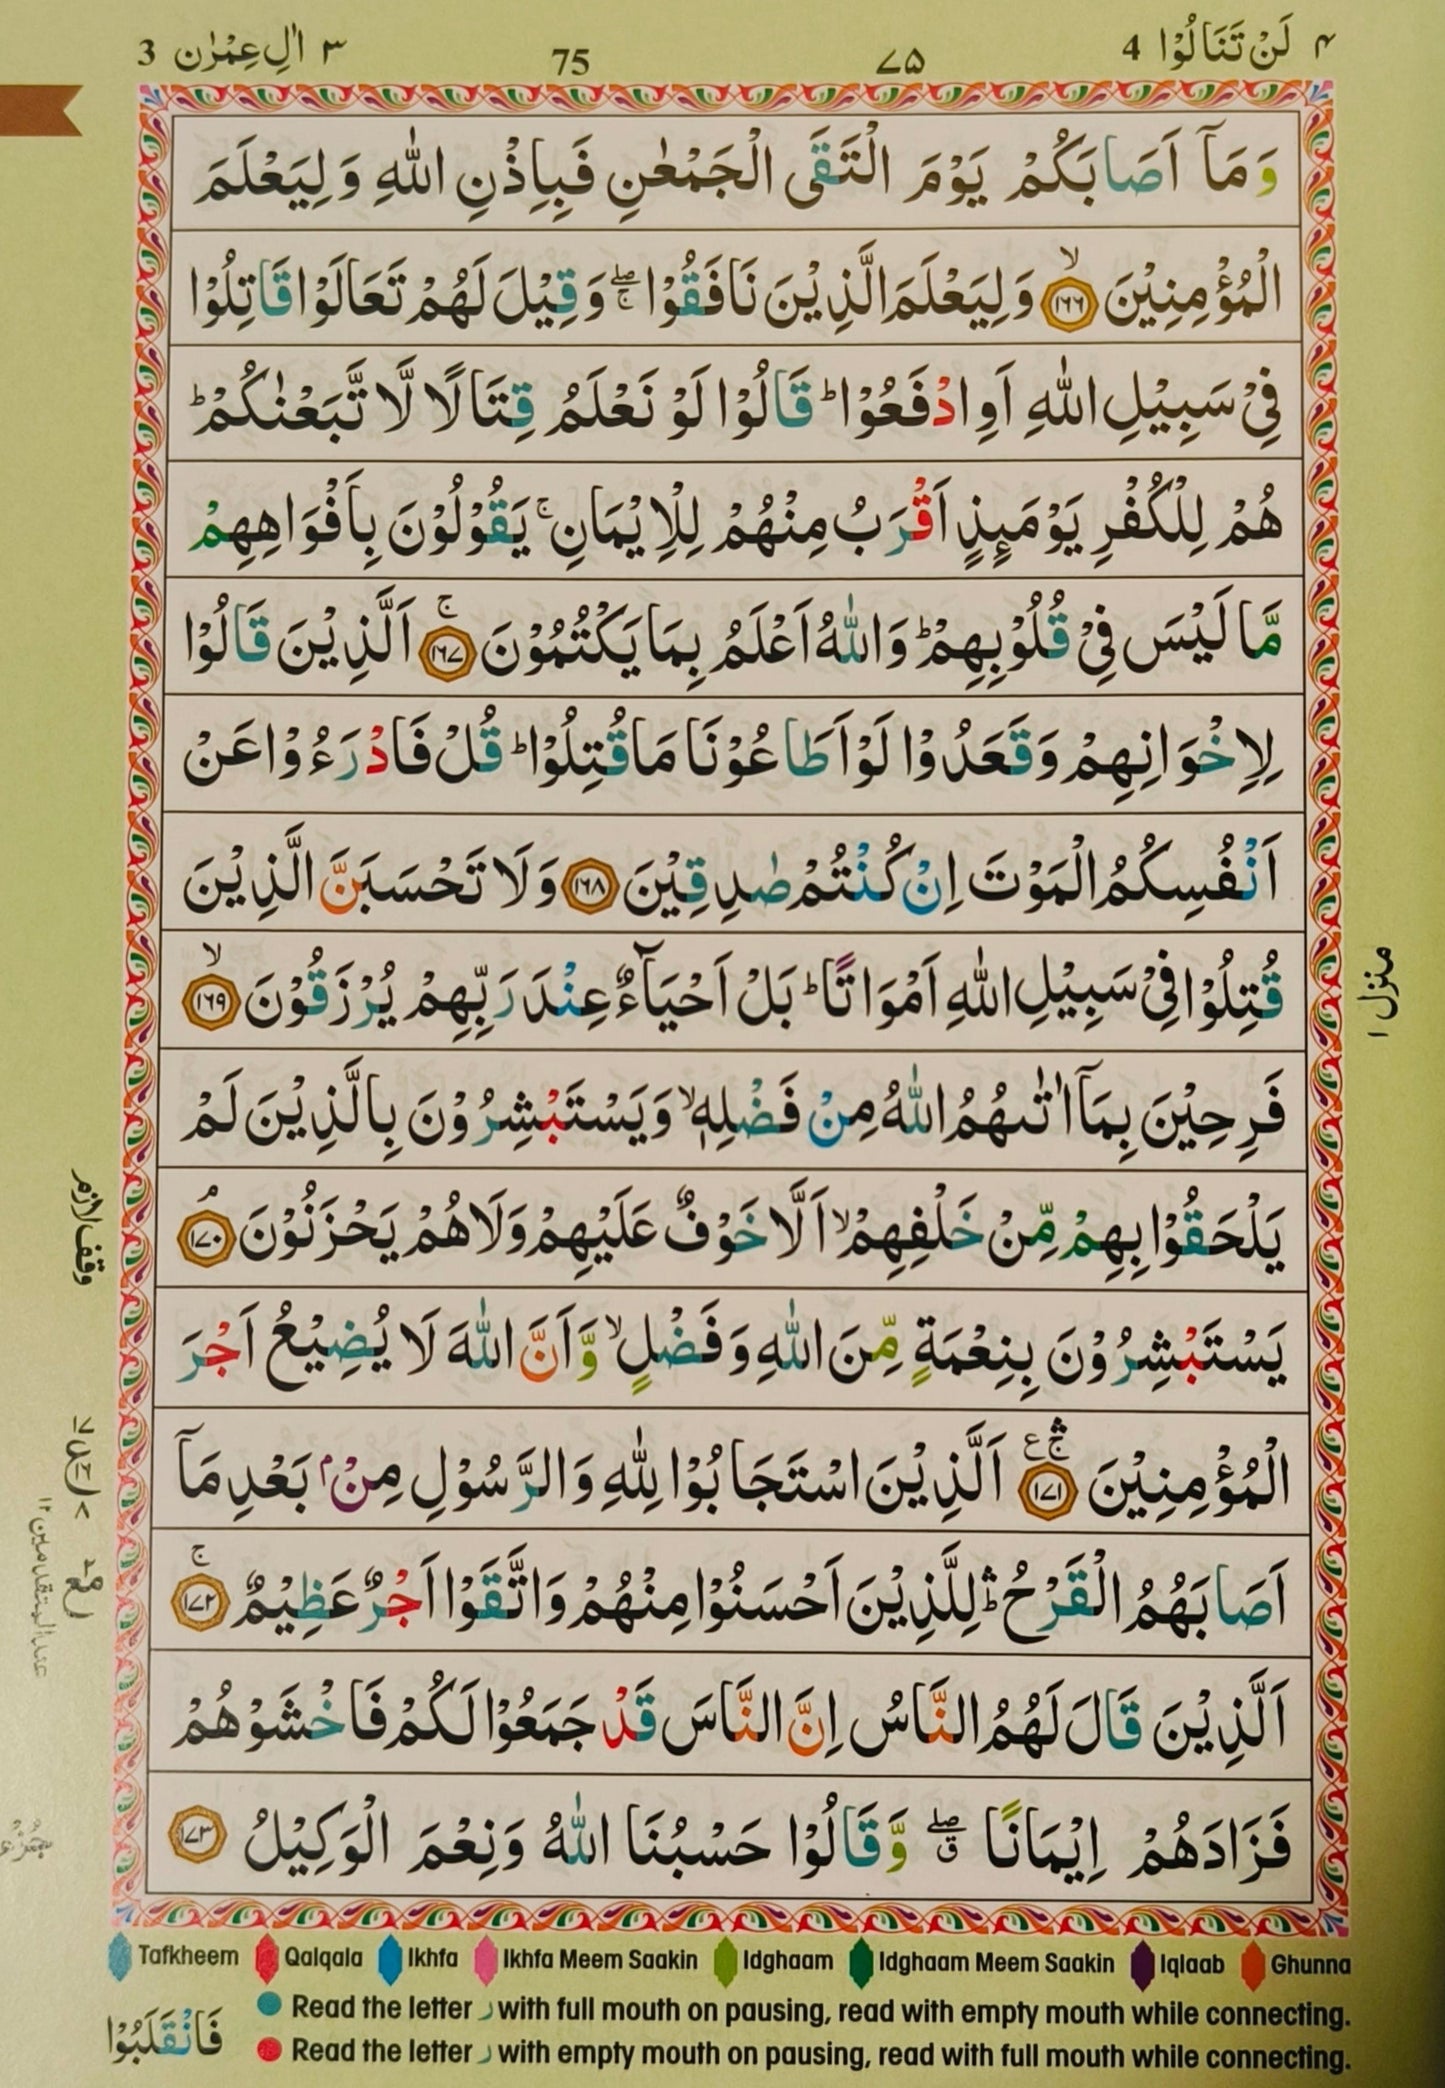 ٤ لَنْ تَنَالُوْا 4 ٧٥ 75 ٣ اٰلِ عِمْرٰن 3
وَمَآ اَصَابَكُمْ يَوْمَ الْتَقَى الْجَمْعٰنِ فَبِاِذْنِ اللّٰهِ وَلِيَعْلَمَ
الْمُؤْمِنِيْنَ ۙ‏﴿١٦٦﴾ وَلِيَعْلَمَ الَّذِيْنَ نَافَقُوْا ۖۚ وَقِيْلَ لَهُمْ تَعَالَوْا قَاتِلُوْا
فِىْ سَبِيْلِ اللّٰهِ اَوِ ادْفَعُوْا ؕ قَالُوْا لَوْ نَعْلَمُ قِتَالًا لَّا تَّبَعْنٰكُمْ ؕ
هُمْ لِلْكُفْرِ يَوْمَىِٕذٍ اَقْرَبُ مِنْهُمْ لِلْاِيْمَانِ ۚ يَقُوْلُوْنَ بِاَفْوَاهِهِمْ
مَّا لَيْسَ فِىْ قُلُوْبِهِمْ ؕ وَاللّٰهُ اَعْلَمُ بِمَا يَكْتُمُوْنَ ۚ‏﴿١٦٧﴾ اَلَّذِيْنَ قَالُوْا
لِاِخْوَانِهِمْ وَقَعَدُوْا لَوْ اَطَاعُوْنَا مَا قُتِلُوْا ؕ قُلْ فَادْرَءُوْا عَنْ
اَنْفُسِكُمُ الْمَوْتَ اِنْ كُنْتُمْ صٰدِقِيْنَ ﴿١٦٨﴾ وَلَا تَحْسَبَنَّ الَّذِيْنَ
قُتِلُوْا فِىْ سَبِيْلِ اللّٰهِ اَمْوَاتًا ؕ بَلْ اَحْيَآءٌ عِنْدَ رَبِّهِمْ يُرْزَقُوْنَ ۙ‏﴿١٦٩﴾
فَرِحِيْنَ بِمَآ اٰتٰىهُمُ اللّٰهُ مِنْ فَضْلِهٖ ۙ وَيَسْتَبْشِرُوْنَ بِالَّذِيْنَ لَمْ
يَلْحَقُوْا بِهِمْ مِّنْ خَلْفِهِمْ ۙ اَلَّا خَوْفٌ عَلَيْهِمْ وَلَا هُمْ يَحْزَنُوْنَ ۘ‏﴿١٧٠﴾
يَسْتَبْشِرُوْنَ بِنِعْمَةٍ مِّنَ اللّٰهِ وَفَضْلٍ ۙ وَّاَنَّ اللّٰهَ لَا يُضِيْعُ اَجْرَ
الْمُؤْمِنِيْنَ ﴿١٧١﴾ اَلَّذِيْنَ اسْتَجَابُوْا لِلّٰهِ وَالرَّسُوْلِ مِنْۢ بَعْدِ مَآ
اَصَابَهُمُ الْقَرْحُ ۛؕ لِلَّذِيْنَ اَحْسَنُوْا مِنْهُمْ وَاتَّقَوْا اَجْرٌ عَظِيْمٌ ۚ‏﴿١٧٢﴾
اَلَّذِيْنَ قَالَ لَهُمُ النَّاسُ اِنَّ النَّاسَ قَدْ جَمَعُوْا لَكُمْ فَاخْشَوْهُمْ
فَزَادَهُمْ اِيْمَانًا ۖۗ وَّقَالُوْا حَسْبُنَا اللّٰهُ وَنِعْمَ الْوَكِيْلُ ﴿١٧٣﴾
منزل ١
وقف لازم
Tafkheem Qalqala Ikhfa Ikhfa Meem Saakin Idghaam Idghaam Meem Saakin Iqlaab Ghunna
Read the letter ر with full mouth on pausing, read with empty mouth while connecting.
Read the letter ر with empty mouth on pausing, read with full mouth while connecting.
فَانْقَلَبُوْا